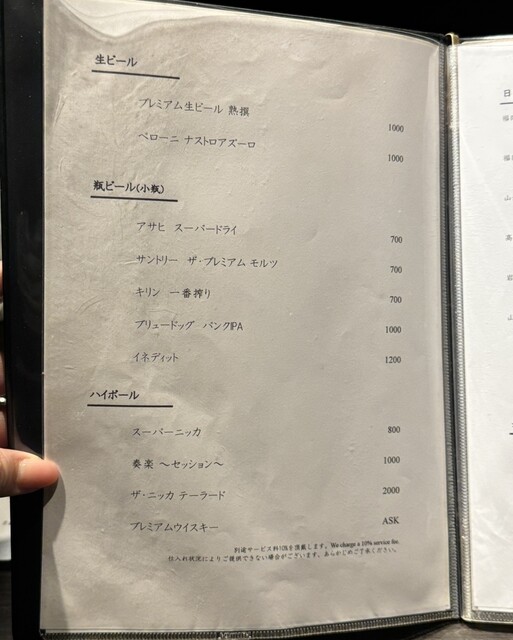 生ビール
プレミアム生ビール 熟撰 1000
ペローニ ナストロアズーロ 1000
瓶ビール(小瓶)
アサヒ スーパードライ 700
サントリー ザ・プレミアム モルツ 700
キリン 一番搾り 700
ブリュードッグ パンクIPA 1000
イネディット 1200
ハイボール
スーパーニッカ 800
奏楽 ～セッション～ 1000
ザ・ニッカ テーラード 2000
プレミアムウイスキー ASK
別途サービス料10%を頂戴します。We charge a 10% service fee.
仕入れ状況によりご提供できない場合がございます。あらかじめご了承ください。
日
山
高
岩
山